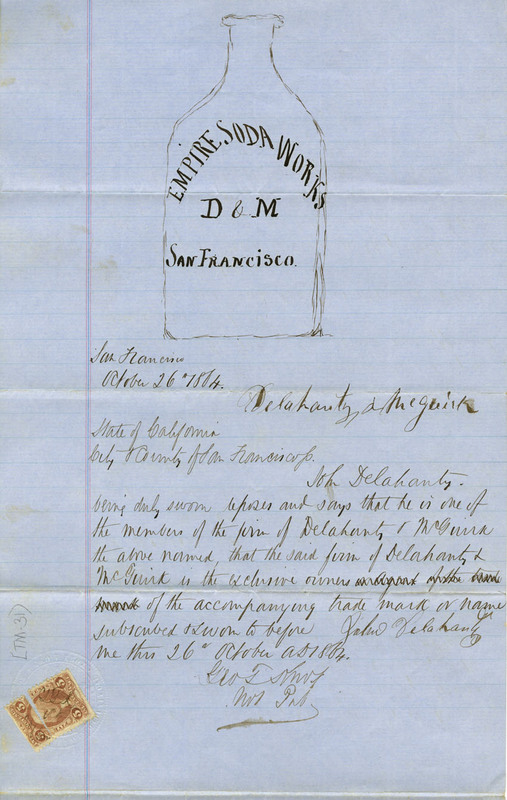 EMPIRE SODA WORKS
D & M
SAN FRANCISCO.
San Francisco
October 26th 1864.
Delahanty & McGuirk
State of California
City & County of San Francisco ss.
John Delahanty.
being duly sworn deposes and says that he is one of
the members of the firm of Delahanty & McGuirk
the above named, that the said firm of Delahanty &
McGuirk is the exclusive owners
of the accompanying trade mark or name
subscribed & sworn to before John Delahanty
me this 26th October AD 1864.
Geo T Knox
Not Pub
[TM-31]
5
5